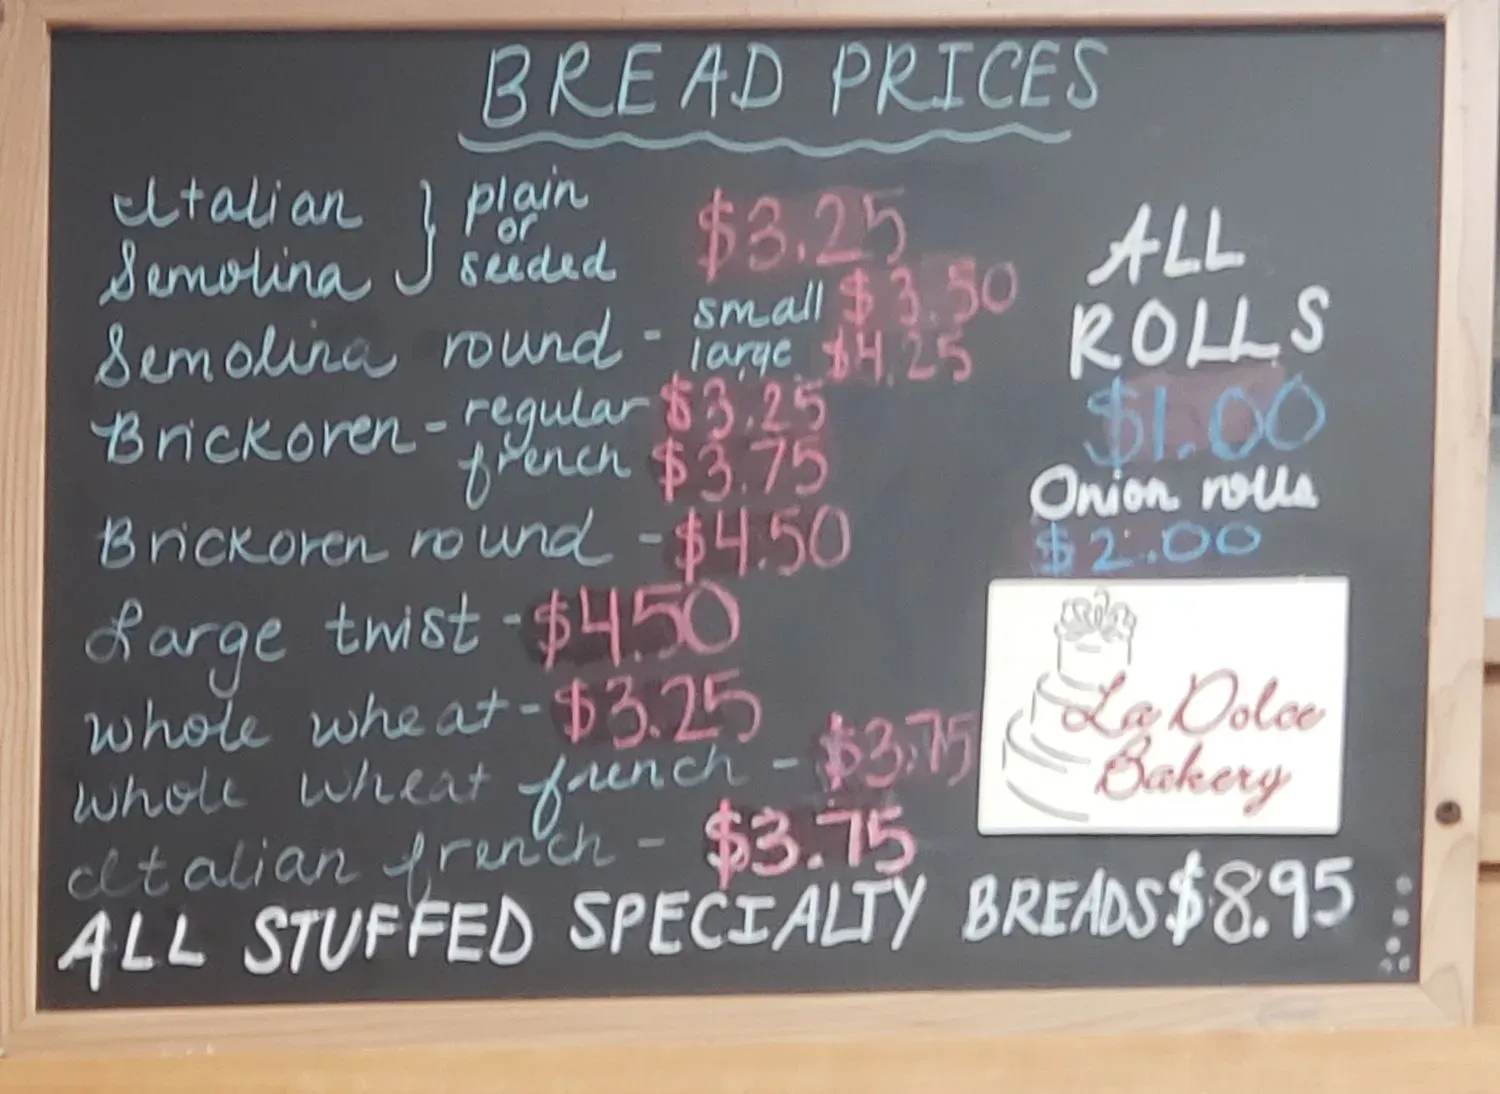 BREAD PRICES
Italian } plain or seeded $3.25
Semolina
Semolina round - small $3.50
large $4.25
Brickoven - regular $3.25
french $3.75
Brickoven round - $4.50
Large twist - $4.50
Whole wheat - $3.25
Whole wheat french - $3.75
Italian french - $3.75
ALL STUFFED SPECIALTY BREADS $8.95
ALL
ROLLS
$1.00
Onion rolls
$2.00
La Dolce
Bakery